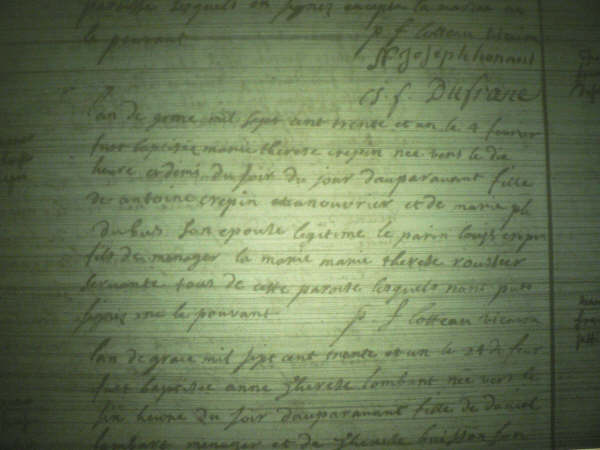 paroisse lesquels ont signez excepté la marine ne
le pouvant p f Cotteau vicaire
Joseph
f. Dufrane
lan de grace mil sept cent trente et un le 4 fevrier
fut baptisée marie therese crepin nee vers le dix
heure et demi du soir du jour dauparavant fille
de antoine crepin manouvrier et de marie ph
dubus son epouse legitime le parin louis crepin
fils de menager la marine marie therese
servante tous de cette paroisse lesquels nont pus
signez ne le pouvant p f Cotteau vicaire
lan de grace mil sept cent trente et un le 24 de fevr
fut baptisée anne therese lombart nee vers le
six heure du soir dauparavant fille de daniel
lombart menager et de therese buisson son